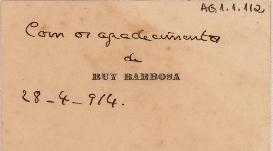 AG.1.1.112
Com os agradecimentos
de
RUY BARBOSA
28-4-914.